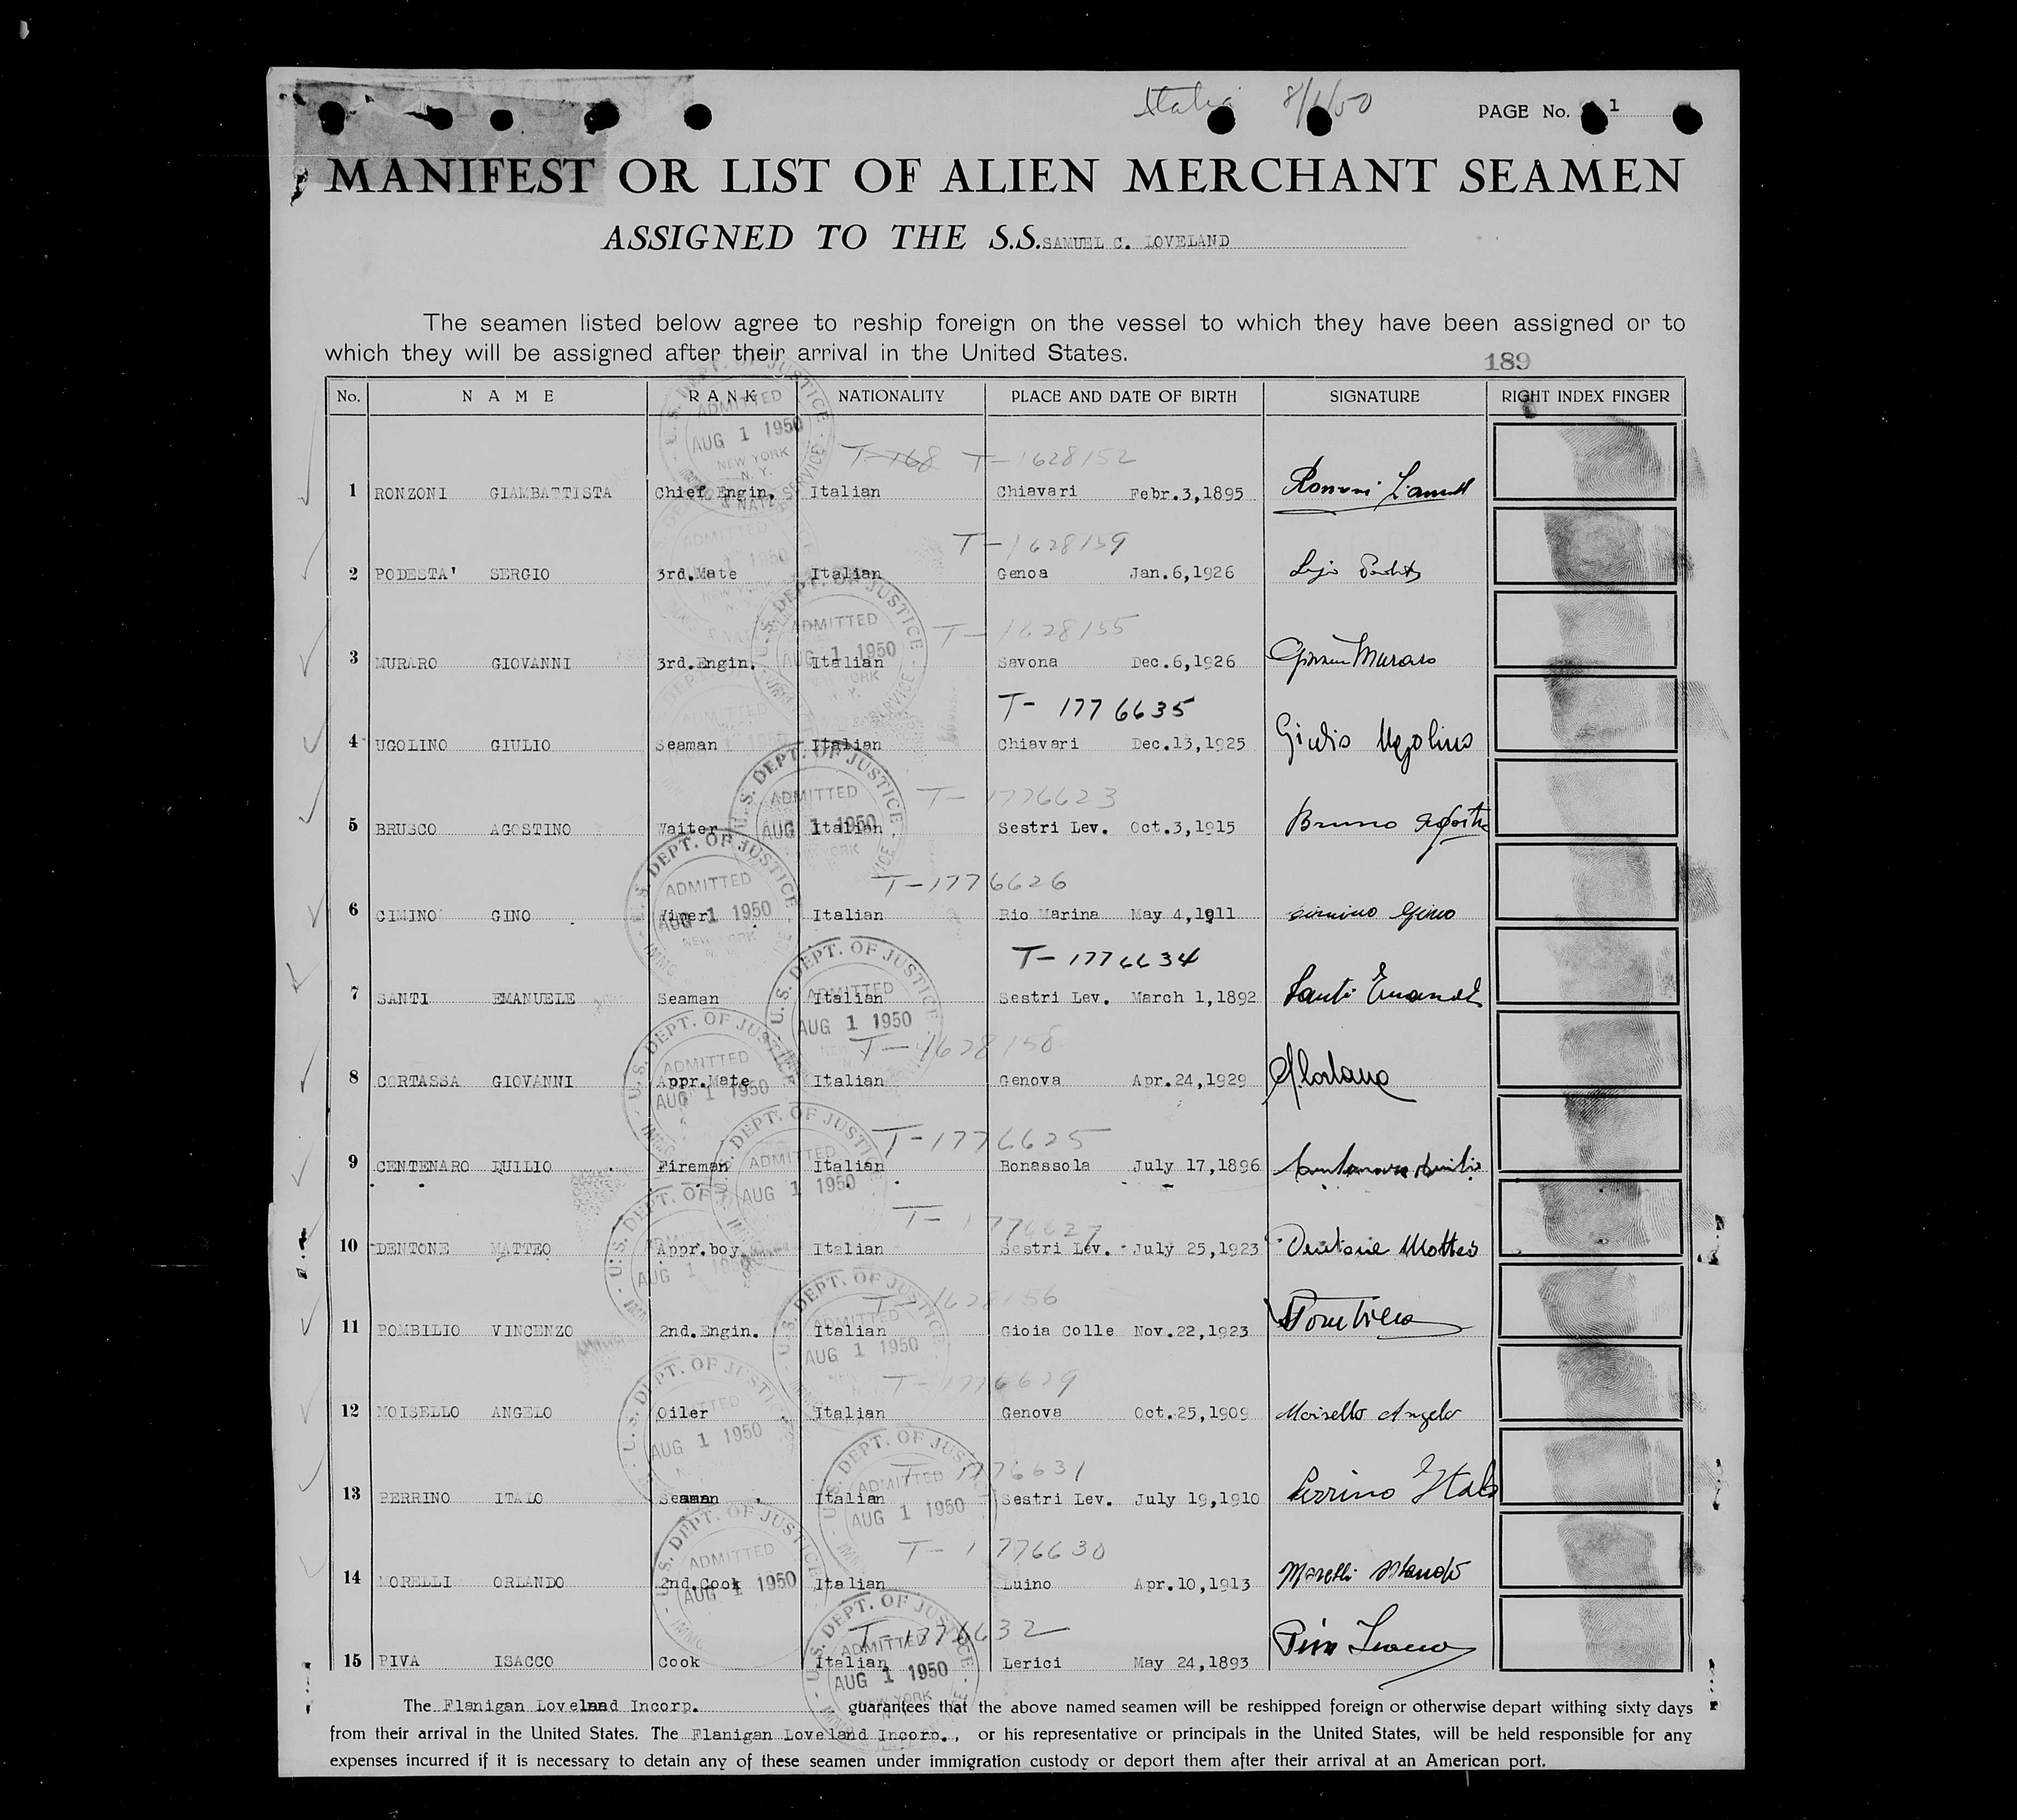 Italia 8/1/50 PAGE No. 1
MANIFEST OR LIST OF ALIEN MERCHANT SEAMEN
ASSIGNED TO THE S.S. SAMUEL C. LOVELAND
The seamen listed below agree to reship foreign on the vessel to which they have been assigned or to
which they will be assigned after their arrival in the United States.
189
No. NAME RANK NATIONALITY PLACE AND DATE OF BIRTH SIGNATURE RIGHT INDEX FINGER
U.S. DEPT. OF JUSTICE ADMITTED AUG 1 1950 NEW YORK N. Y. IMMG. & NATZ. SERVICE
T-168 T-1628152
1 RONZONI GIAMBATTISTA Chief Engin. Italian Chiavari Febr.3,1895 Ronzoni
T-1628159
2 PODESTA' SERGIO 3rd.Mate Italian Genoa Jan.6,1926
T-1628155
3 MURARO GIOVANNI 3rd.Engin. Italian Savona Dec.6,1926 Giovanni Muraro
T-1776635
4 UGOLINO GIULIO Seaman Italian Chiavari Dec.13,1925 Giulio Ugolino
T-1776623
5 BRUSCO AGOSTINO Waiter Italian Sestri Lev. Oct.3,1915 Brusco Agostino
T-1776626
6 CIMINO GINO Wiper Italian Rio Marina May 4,1911 Cimino Gino
T-1776634
7 SANTI EMANUELE Seaman Italian Sestri Lev. March 1,1892 Santi Emanuele
T-1628158
8 CORTASSA GIOVANNI Appr.Mate Italian Genova Apr.24,1929
T-1776625
9 CENTENARO DUILIO Fireman Italian Bonassola July 17,1896 Centenaro Duilio
T-1776627
10 DENTONE MATTEO Appr.boy Italian Sestri Lev. July 25,1923 Dentone Matteo
T-1628156
11 POMBILIO VINCENZO 2nd.Engin. Italian Gioia Colle Nov.22,1923
T-1776629
12 MOISELLO ANGELO Oiler Italian Genova Oct.25,1909 Moisello Angelo
T-1776631
13 PERRINO ITALO Seaman Italian Sestri Lev. July 19,1910 Perrino Italo
T-1776630
14 MORELLI ORLANDO 2nd.Cook Italian Luino Apr.10,1913 Morelli Orlando
T-1776632
15 PIVA ISACCO Cook Italian Lerici May 24,1893 Piva Isacco
The Flanigan Loveland Incorp. guarantees that the above named seamen will be reshipped foreign or otherwise depart withing sixty days
from their arrival in the United States. The Flanigan Loveland Incorp., or his representative or principals in the United States, will be held responsible for any
expenses incurred if it is necessary to detain any of these seamen under immigration custody or deport them after their arrival at an American port.